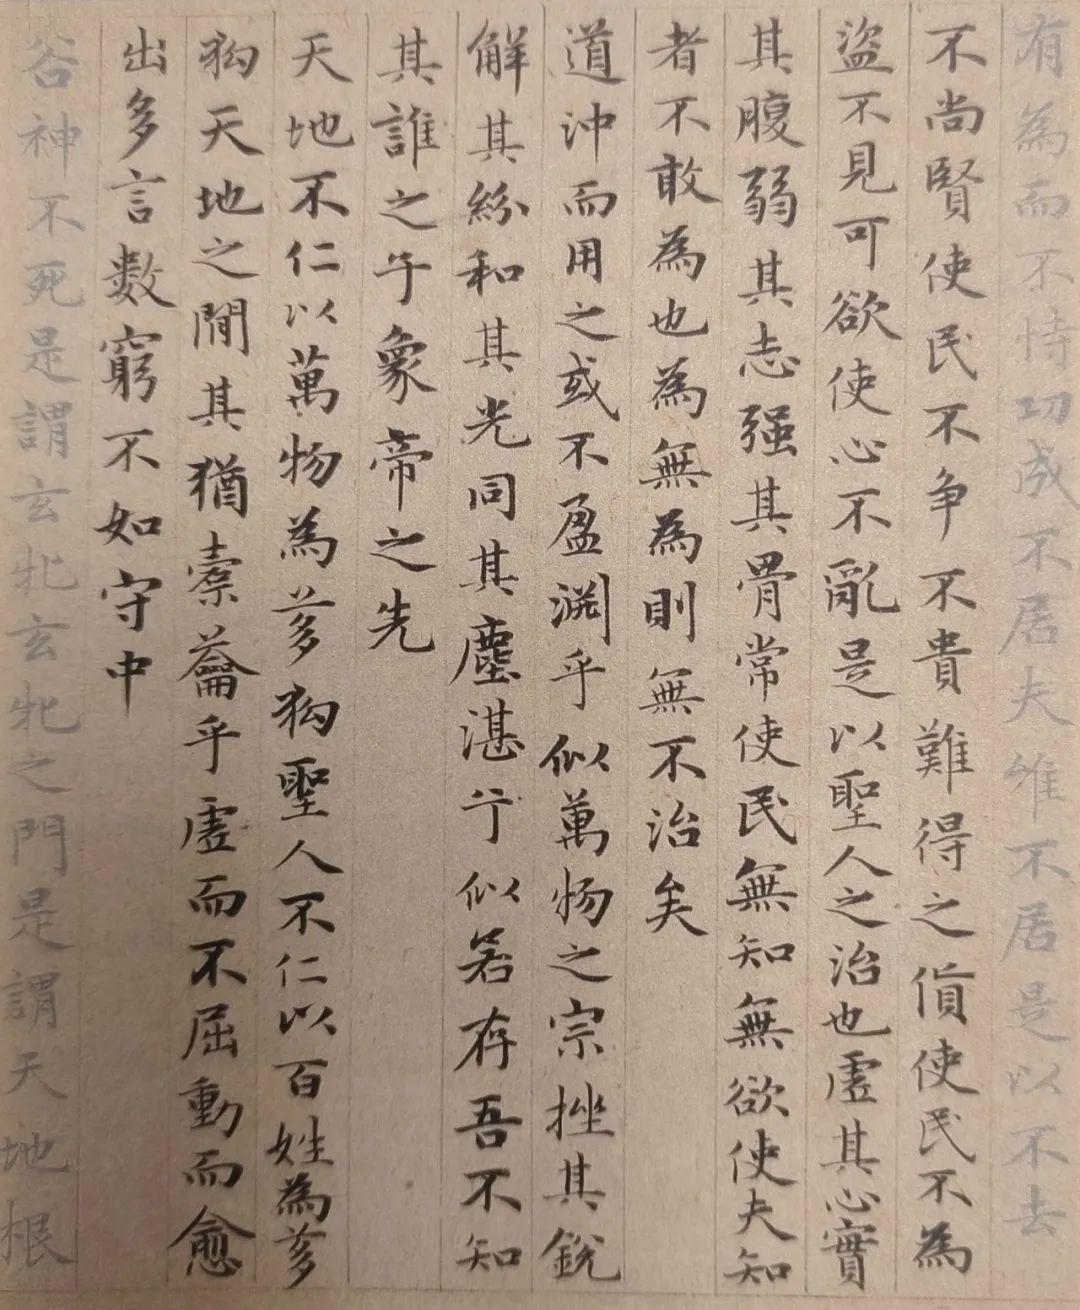 有為而不恃功成不居夫唯不居是以不去
不尚賢使民不争不貴難得之貨使民不為
盜不見可欲使心不亂是以聖人之治也虛其心實
其腹弱其志强其骨常使民無知無欲使夫知
者不敢為也為無為則無不治矣
道沖而用之或不盈淵乎似萬物之宗挫其銳
解其紛和其光同其塵湛兮似若存吾不知
其誰之子象帝之先
天地不仁以萬物為芻狗聖人不仁以百姓為芻
狗天地之間其猶橐籥乎虛而不屈動而愈
出多言數窮不如守中
谷神不死是謂玄牝玄牝之門是謂天地根